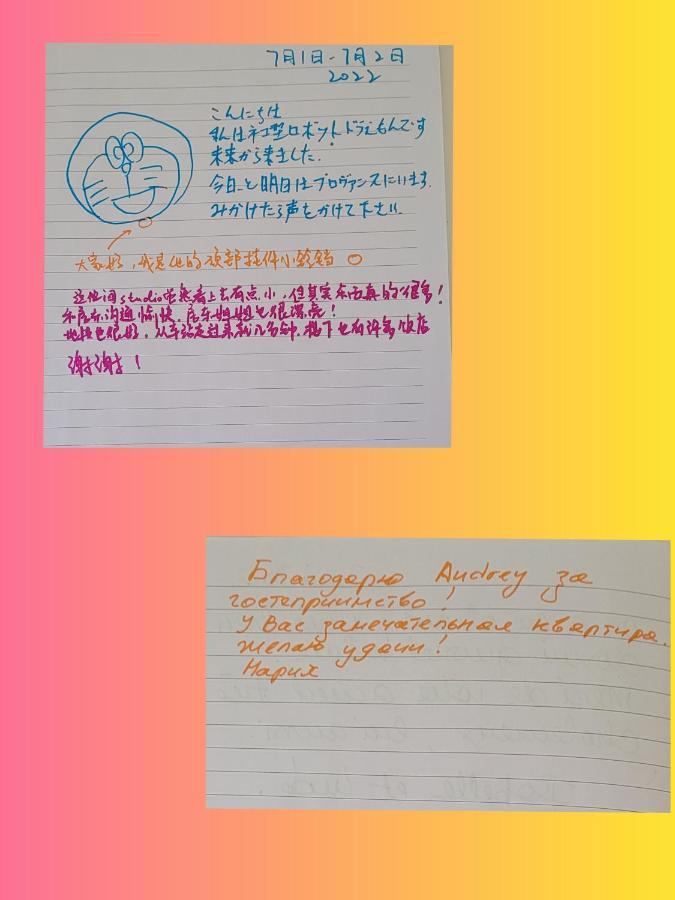 7月1日-7月2日
2022
こんにちは
私はネコ型ロボットドラえもんです
未来から来ました.
今日と明日はプロヴァンスにいます.
みかけたら声をかけて下さい
大家好,我是他的颈部挂件小铃铛
这他间studio虽然看上去有点小,但其实东西真的很多!
和房东沟通愉快,房东姐姐也很漂亮!
地段也很好,从车站走过来就几分钟,楼下也有许多饭店
谢谢!
Благодарю Audrey за
гостеприимство!
У Вас замечательная квартира.
Желаю удачи!